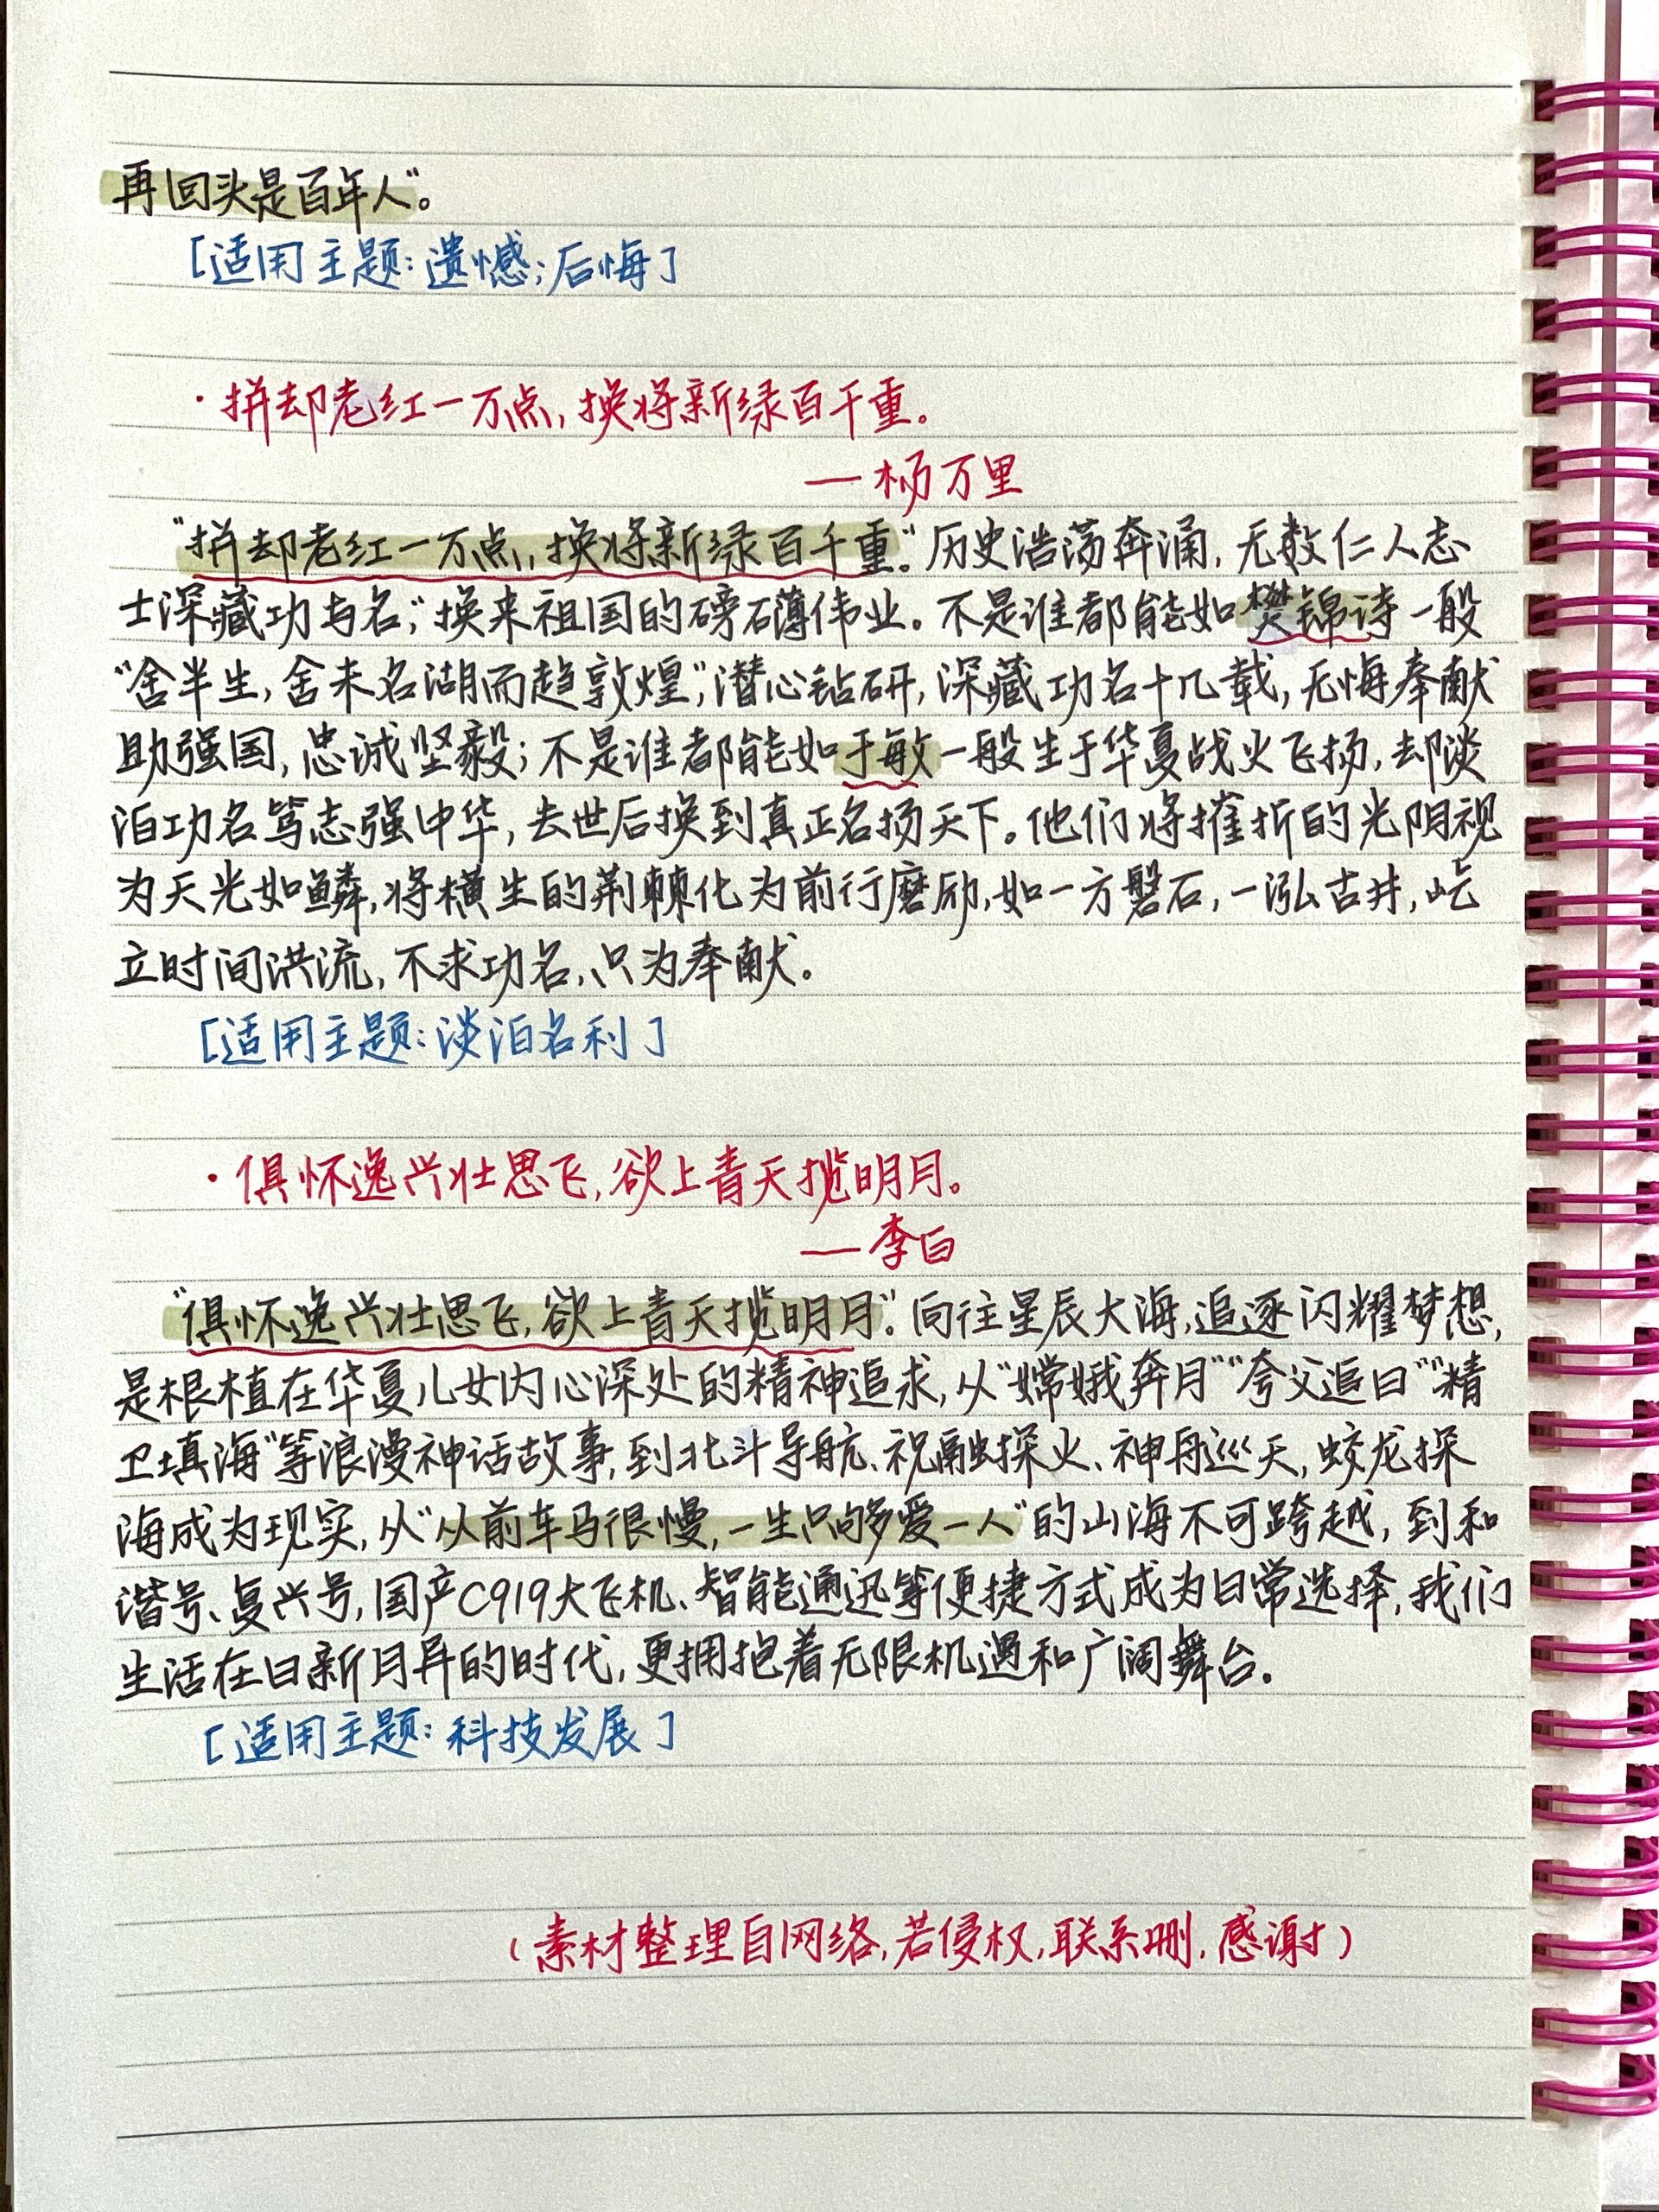 再回头是百年人”。
[适用主题:遗憾;后悔]
·拼却老红一万点,换将新绿百千重。
—杨万里
“拼却老红一万点,换将新绿百千重”。历史浩荡奔涌,无数仁人志
士深藏功与名,“换来祖国的磅礴伟业。不是谁都能如樊锦诗一般
“舍半生,舍未名湖而趋敦煌”,潜心钻研,深藏功名十几载,无悔奉献
助强国,忠诚坚毅;不是谁都能如于敏一般生于华夏战火飞扬,却淡
泊功名笃志强中华,去世后换到真正名扬天下。他们将摧折的光阴视
为天光如鳞,将横生的荆棘化为前行磨励,如一方磐石,一泓古井,屹
立时间洪流,不求功名,只为奉献。
[适用主题:淡泊名利]
·俱怀逸兴壮思飞,欲上青天揽明月。
—李白
“俱怀逸兴壮思飞,欲上青天揽明月”。向往星辰大海,追逐闪耀梦想,
是根植在华夏儿女内心深处的精神追求,从“嫦娥奔月”“夸父追日”“精
卫填海”等浪漫神话故事,到北斗导航、祝融探火、神舟巡天,蛟龙探
海成为现实,从“从前车马很慢,一生只够爱一人”的山海不可跨越,到和
谐号、复兴号,国产C919大飞机、智能通迅等便捷方式成为日常选择,我们
生活在日新月异的时代,更拥抱着无限机遇和广阔舞台。
[适用主题:科技发展]
(素材整理自网络,若侵权,联系删,感谢)